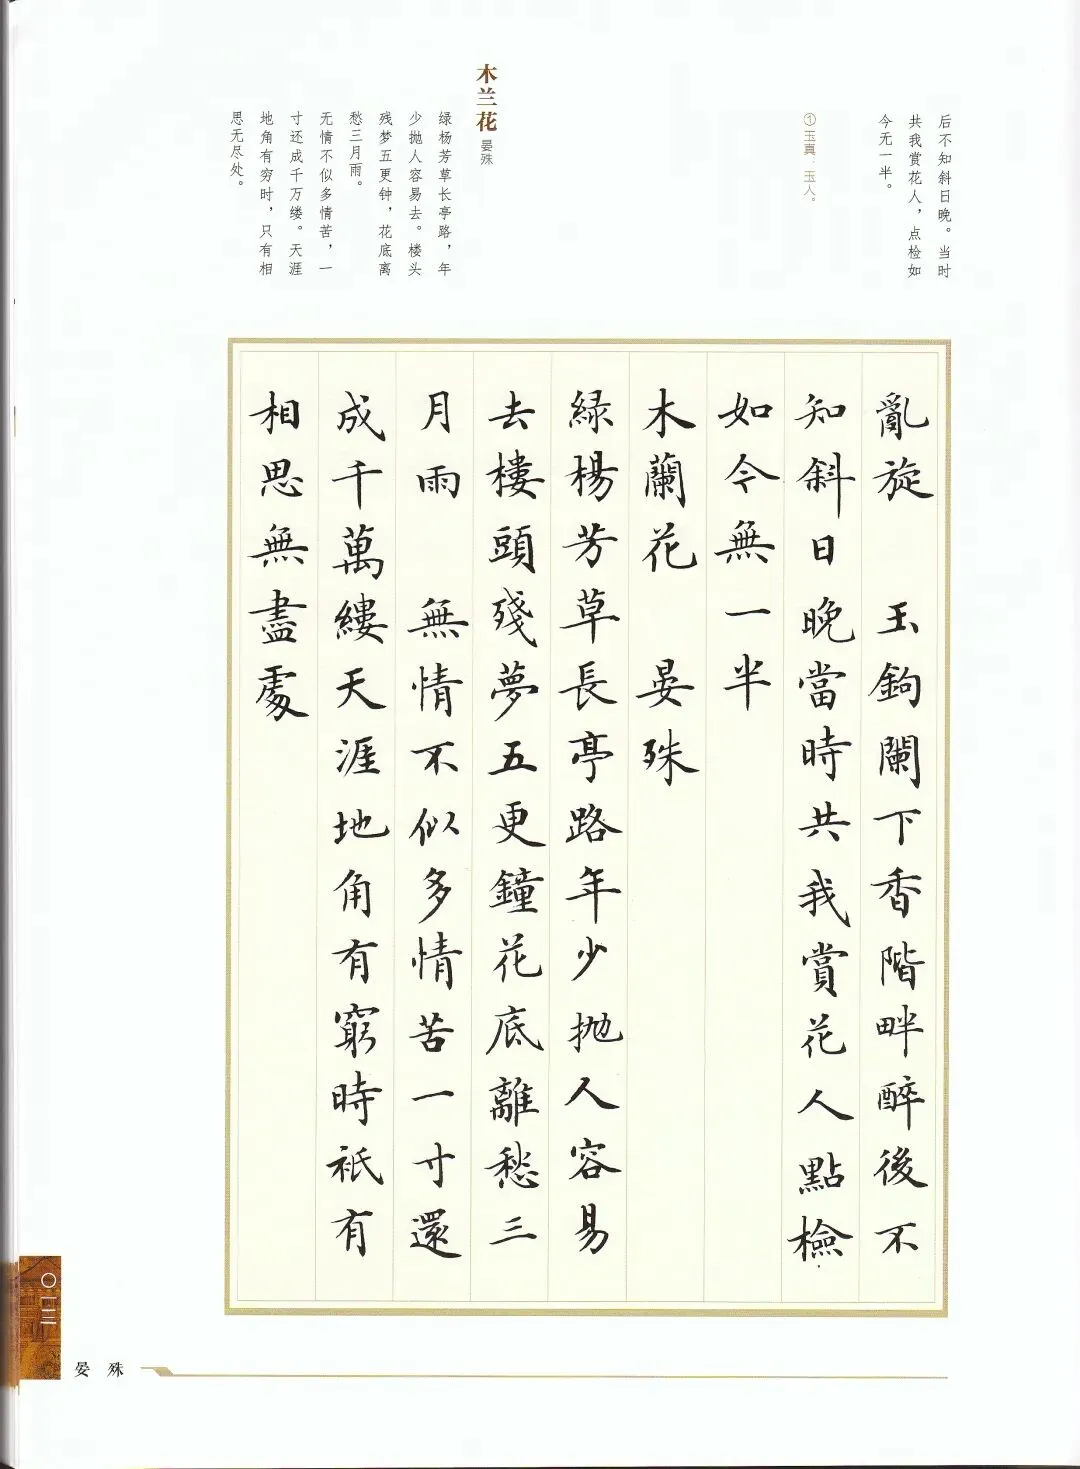 后不知斜日晚。当时
共我赏花人，点检如
今无一半。
①玉真：玉人。
木兰花 晏殊
绿杨芳草长亭路，年
少抛人容易去。楼头
残梦五更钟，花底离
愁三月雨。
无情不似多情苦，一
寸还成千万缕。天涯
地角有穷时，只有相
思无尽处。
亂旋 玉鉤闌下香階畔醉後不
知斜日晚當時共我賞花人點檢
如今無一半
木蘭花 晏殊
綠楊芳草長亭路年少抛人容易
去樓頭殘夢五更鐘花底離愁三
月雨 無情不似多情苦一寸還
成千萬縷天涯地角有窮時祇有
相思無盡處
〇一三
晏殊